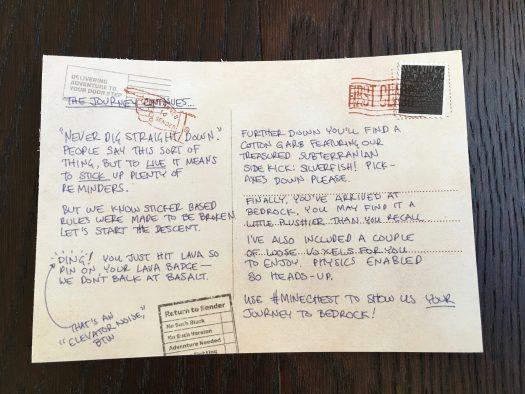 DELIVERING
ADVENTURE TO
YOUR DOOR STEP
THE JOURNEY CONTINUES...
"NEVER DIG STRAIGHT DOWN."
PEOPLE SAY THIS SORT OF
THING, BUT TO LIVE IT MEANS
TO STICK UP PLENTY OF
REMINDERS.
BUT WE KNOW STICKER BASED
RULES WERE MADE TO BE BROKEN
LET'S START THE DESCENT.
*DING!* YOU JUST HIT LAVA SO
PIN ON YOUR LAVA BADGE—
WE DON'T BALK AT BASALT.
THAT'S AN
"ELEVATOR NOISE,"
BTW
Return to Sender
No Such Block
No Such Version
Adventure Needed
FIRST CLA
FURTHER DOWN YOU'LL FIND A
COTTON GARB FEATURING OUR
TREASURED SUBTERRANIAN
SIDE KICK: SILVERFISH! PICK-
AXES DOWN PLEASE.
FINALLY, YOU'VE ARRIVED AT
BEDROCK, YOU MAY FIND IT A
LITTLE PLUSHIER THAN YOU RECALL.
I'VE ALSO INCLUDED A COUPLE
OF LOOSE VOXELS FOR YOU
TO ENJOY. PHYSICS ENABLED
SO HEADS-UP.
USE #MINECHEST TO SHOW US YOUR
JOURNEY TO BEDROCK!